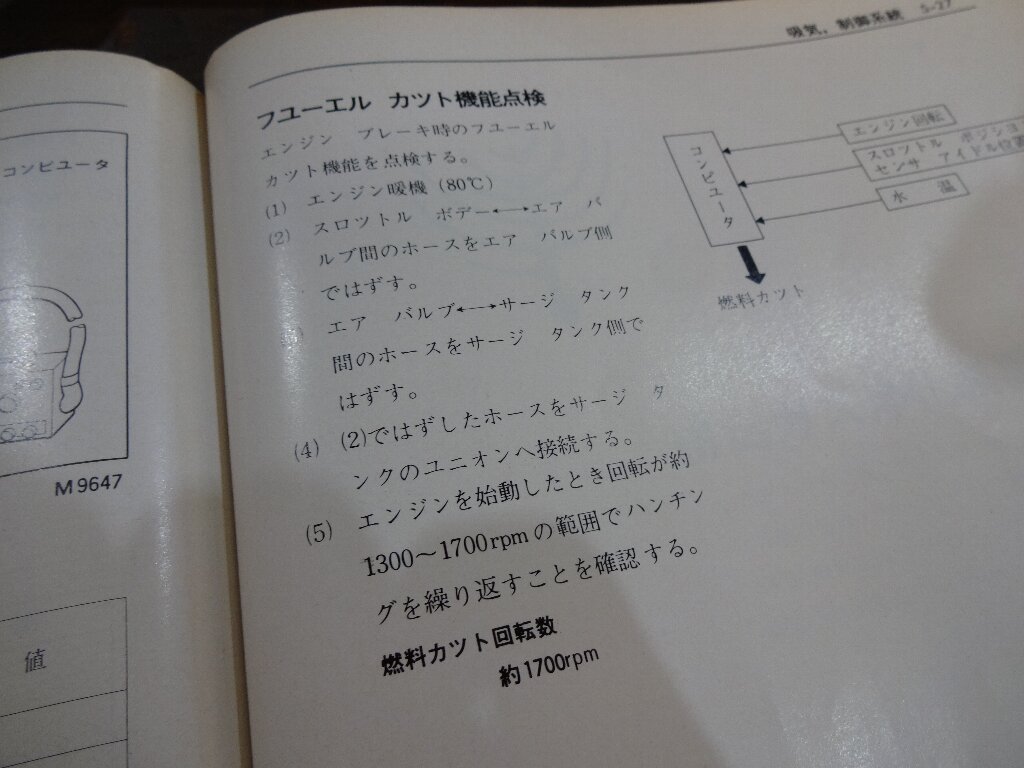 コンピユータ
M9647
値
吸気，制御系統 5-27
フユーエル カツト機能点検
エンジン ブレーキ時のフユーエル
カツト機能を点検する。
(1) エンジン暖機（80℃）
(2) スロツトル ボデー←→エア バ
ルブ間のホースをエア バルブ側
ではずす。
エア バルブ←→サージ タンク
間のホースをサージ タンク側で
はずす。
(4) (2)ではずしたホースをサージ タ
ンクのユニオンへ接続する。
(5) エンジンを始動したとき回転が約
1300〜1700rpmの範囲でハンチン
グを繰り返すことを確認する。
燃料カツト回転数
約1700rpm
コンピユータ
エンジン回転
スロツトル ポジシヨ
センサ アイドル位置
水 温
燃料カツト